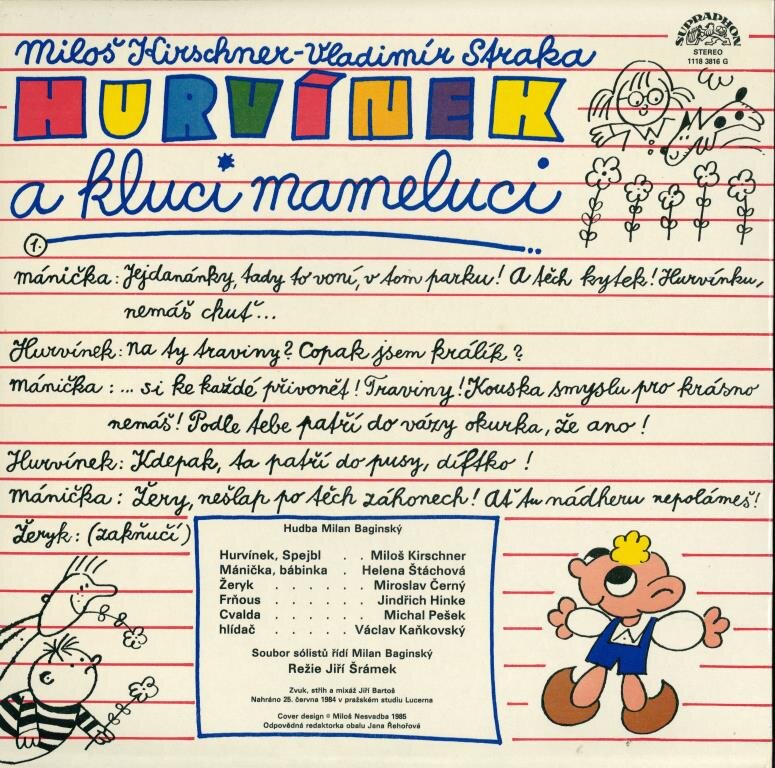 Miloš Kirschner-Vladimír Straka
SUPRAPHON
STEREO
1118 3816 G
HURVÍNEK
a kluci mameluci
1.
Mánička: Jejdanánky, tady to voní, v tom parku! A těch kytek! Hurvínku,
nemáš chuť...
Hurvínek: Na ty traviny? Copak jsem králík?
Mánička: ... si ke každé přivonět! Traviny! Kouska smyslu pro krásno
nemáš! Podle tebe patří do vázy okurka, že ano!
Hurvínek: Kdepak, ta patří do pusy, díftko!
Mánička: Žery, nešlap po těch záhonech! Ať tu nádheru nepolámeš!
Žeryk: (zakňučí)
Hudba Milan Baginský
Hurvínek, Spejbl . . Miloš Kirschner
Mánička, bábinka . Helena Štáchová
Žeryk . . . . . . Miroslav Černý
Frňous . . . . . . Jindřich Hinke
Cvalda . . . . . . Michal Pešek
hlídač . . . . . Václav Kaňkovský
Soubor sólistů řídí Milan Baginský
Režie Jiří Šrámek
Zvuk, střih a mixáž Jiří Bartoš
Nahráno 25. června 1984 v pražském studiu Lucerna
Cover design © Miloš Nesvadba 1985
Odpovědná redaktorka obalu Jana Řehořová